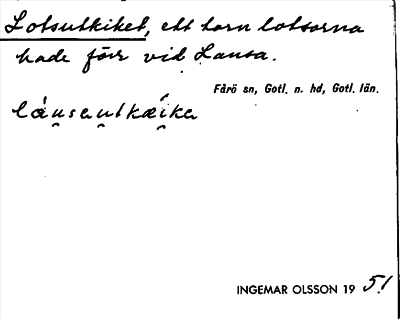 Lotsutkiket, ett torn lotsarna
hade förr vid Lansa.
Fårö sn, Gotl. n. hd, Gotl. län.
lá̯usau̯tkæ̍i̯ka
INGEMAR OLSSON 19 51